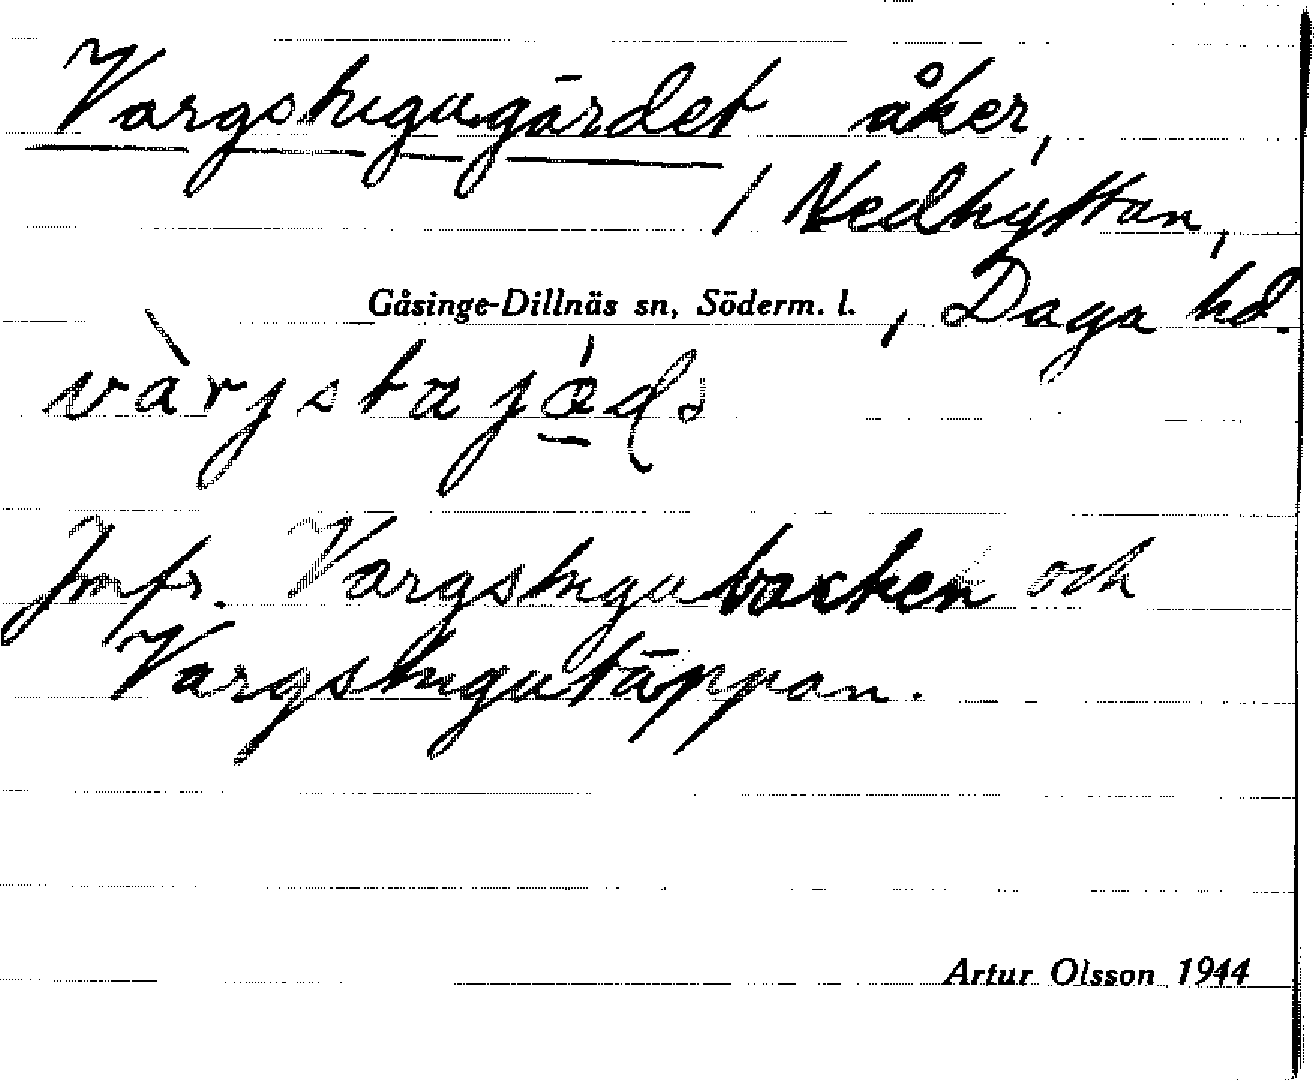 Vargstugugärdet åker,
/ Nedhyttan,
Gåsinge-Dillnäs sn, Söderm. l. , Daga hd.
Jmfr. Vargstugubacken och
Vargstugutäppan.
Artur Olsson 1944